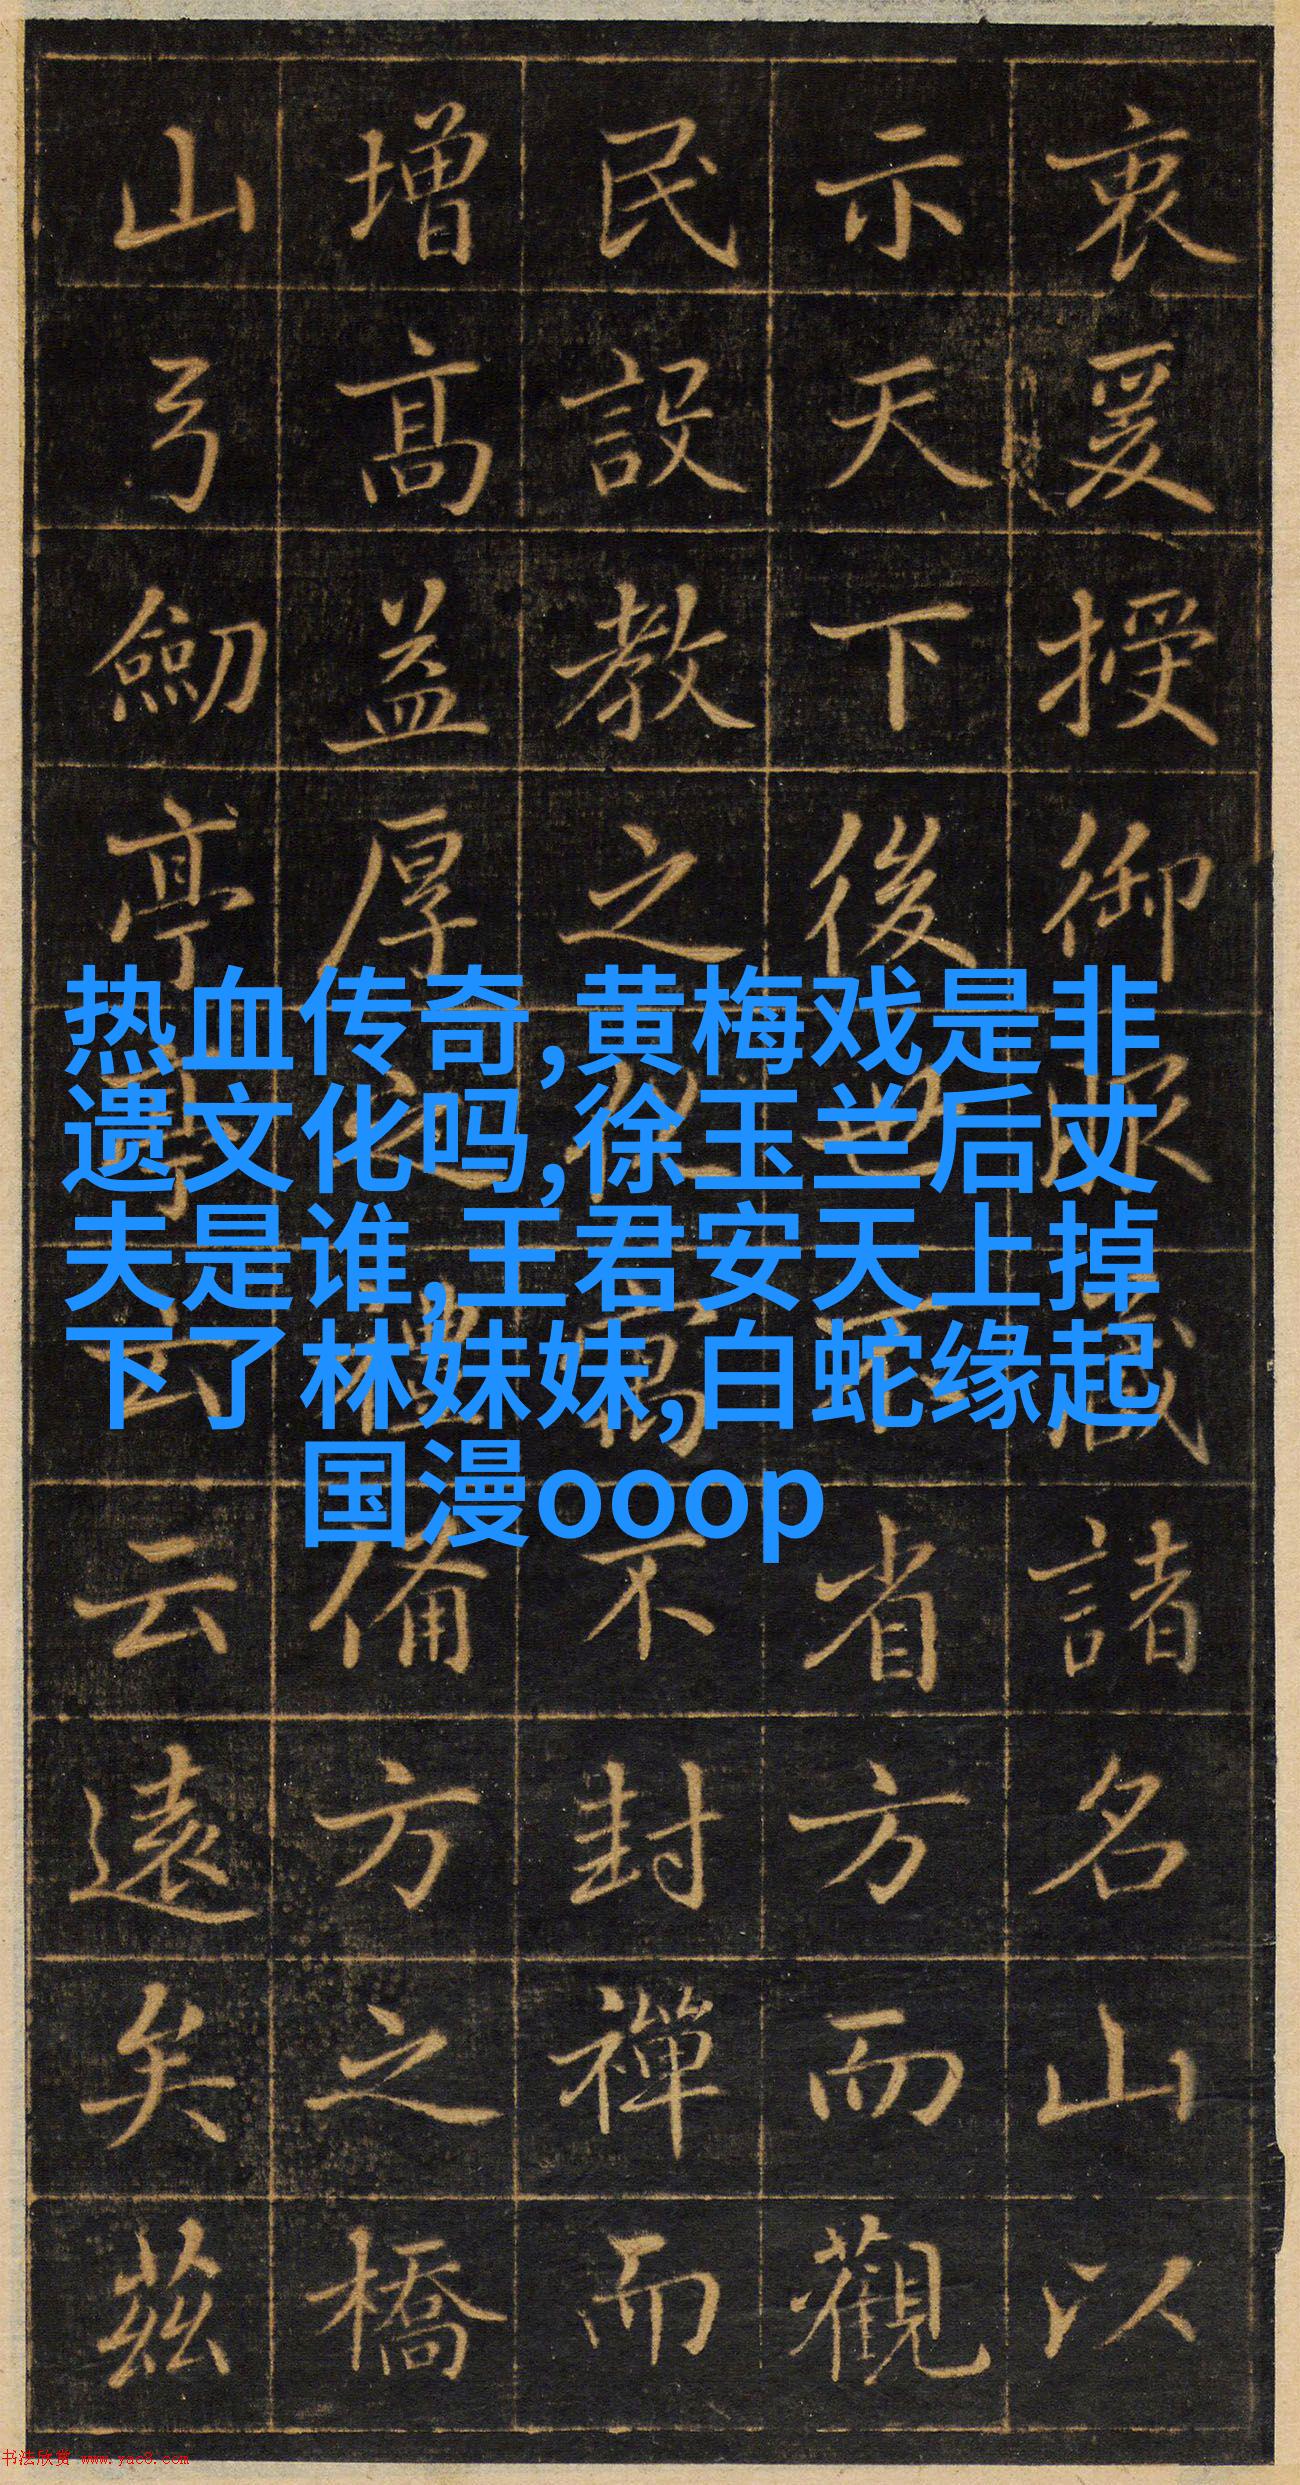 衷爰授御藏諸名山以
示天下後世省方而觀
民設教之寓不封禪而
增高益厚之禮備方之橋
山弓劒亭亭云云遠矣茲
热血传奇,黄梅戏是非
遗文化吗,徐玉兰后丈
夫是谁,王君安天上掉
下了林妹妹,白蛇缘起
国漫ooop
书法欣赏 www.yac8.com